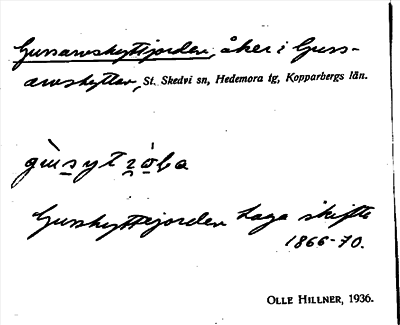 Gussarvshyttjorden, åker i Guss-
arvshyttan, St. Skedvi sn, Hedemora tg, Kopparbergs län.
Gusshyttejorden Laga skifte
1866-70.
OLLE HILLNER, 1936.